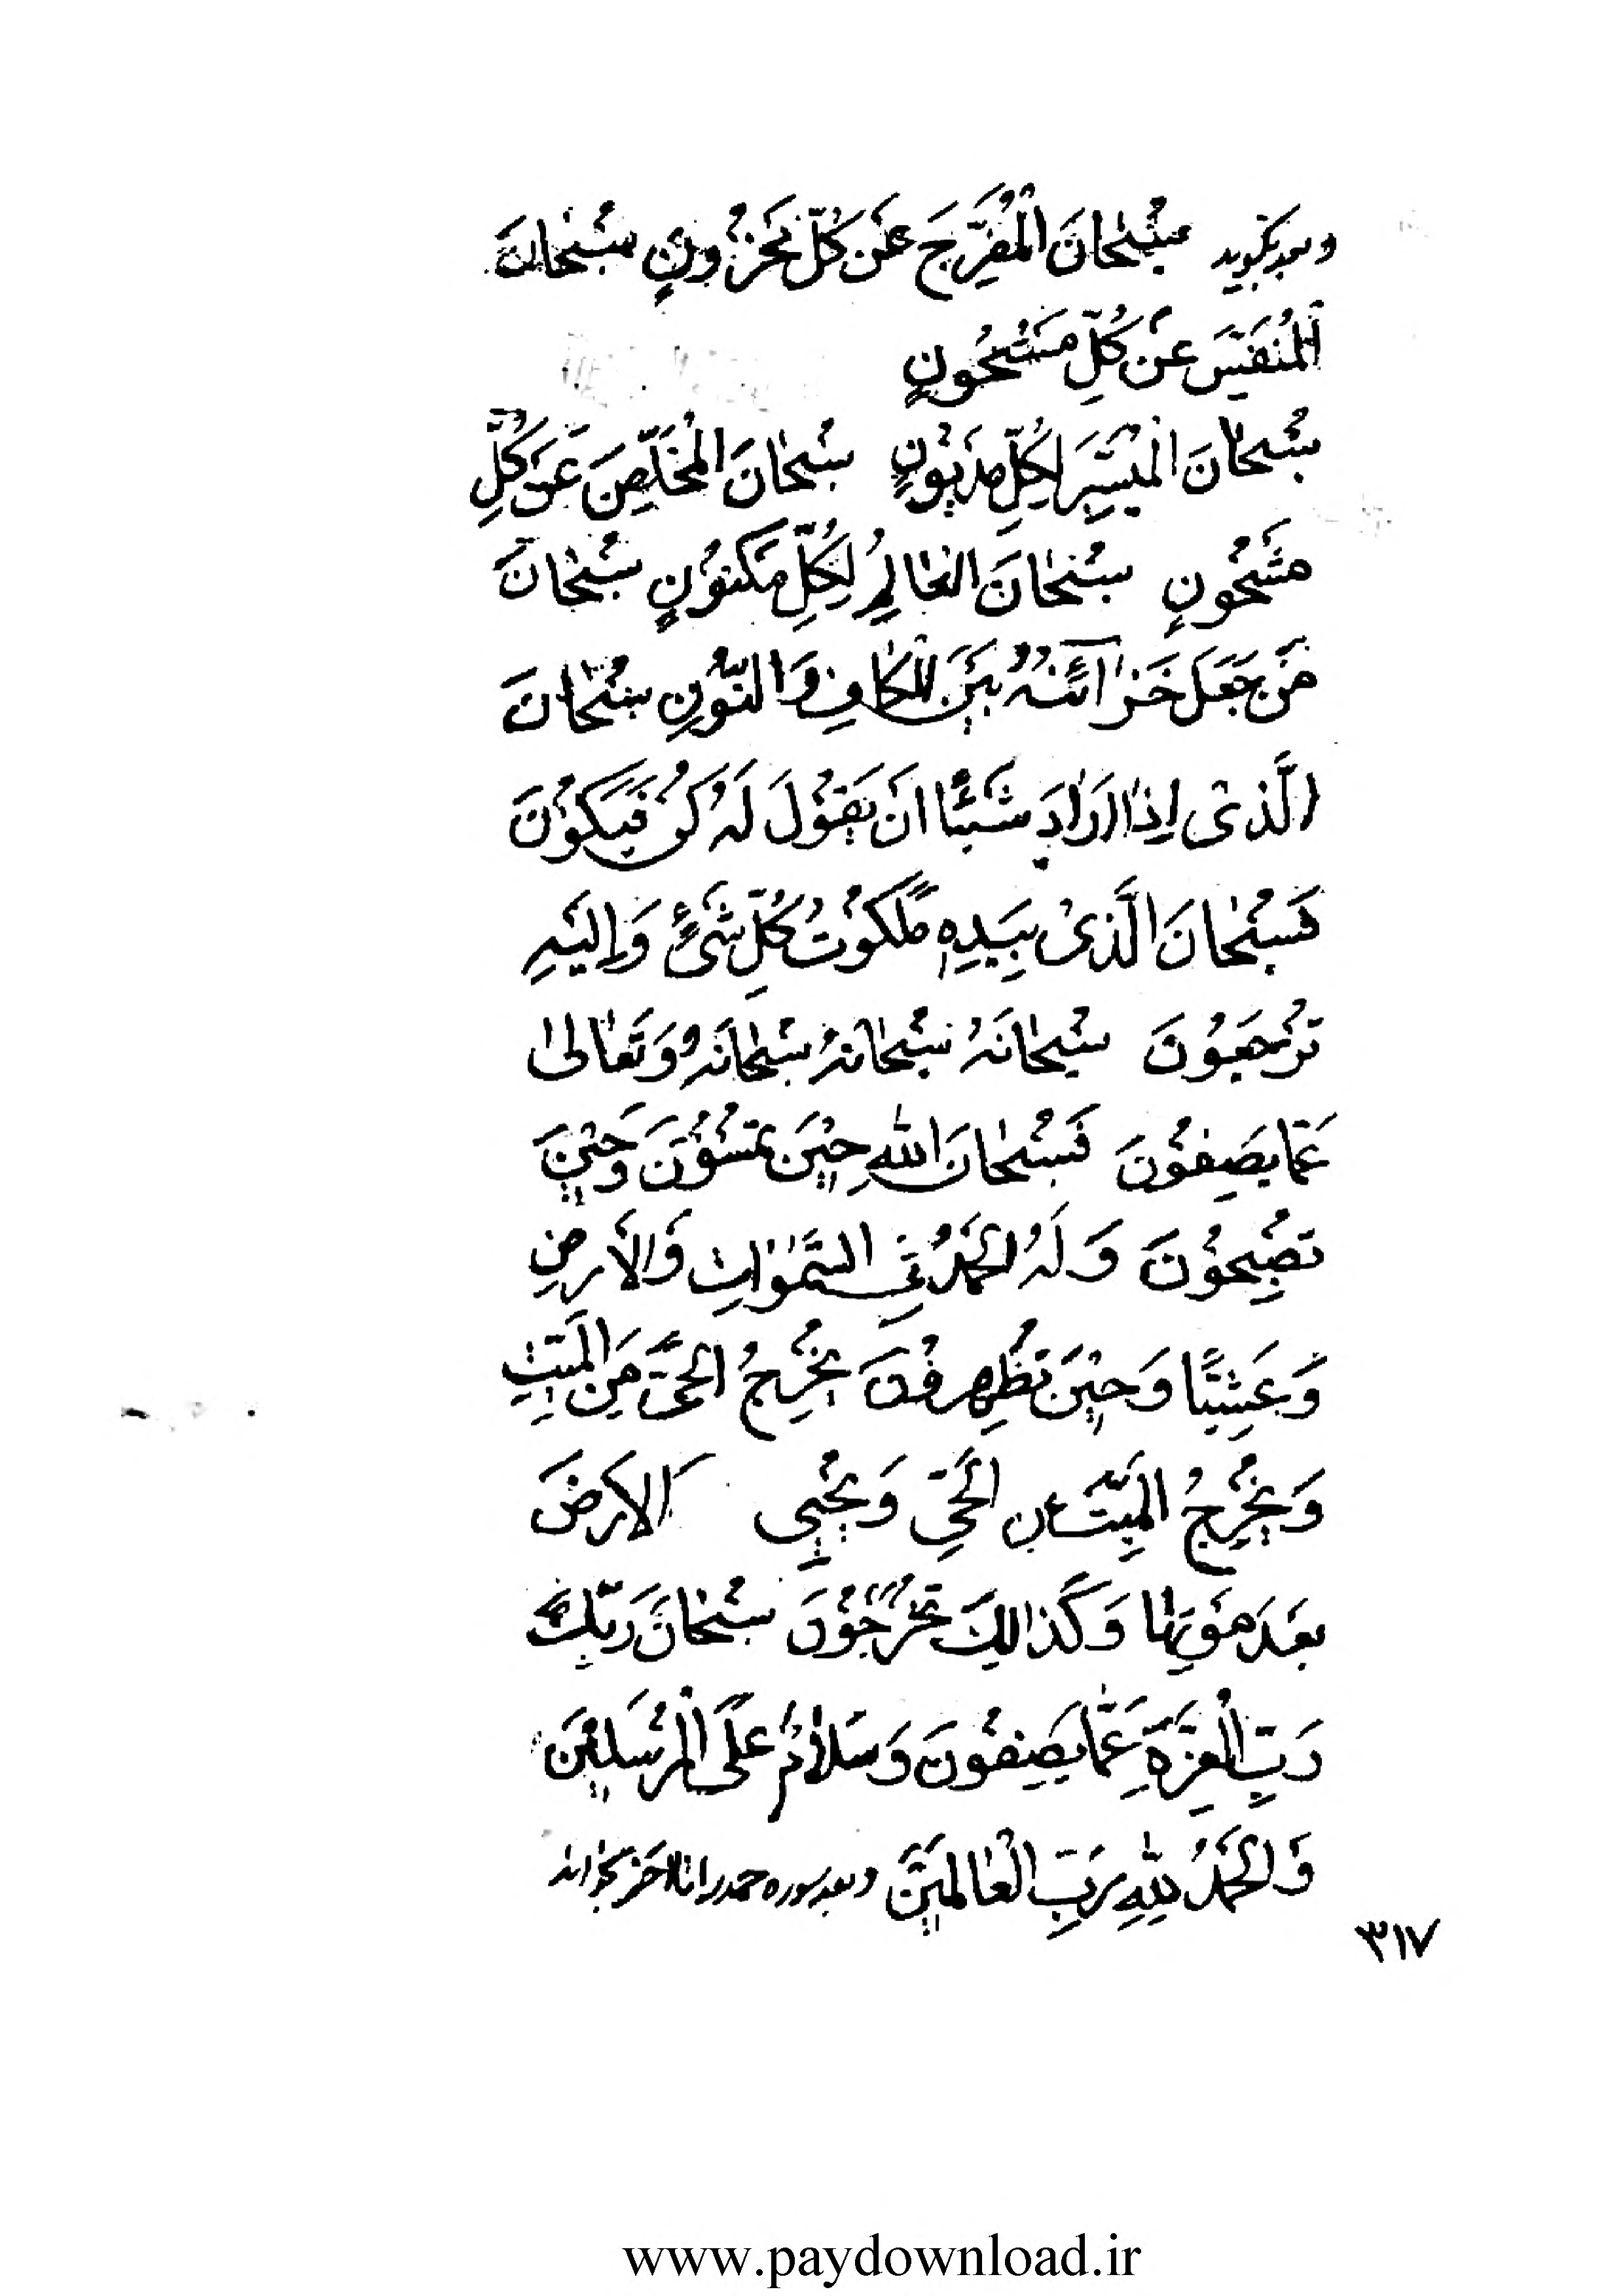 وبعد بگوید سُبْحانَ الْمُفَرِّجَ عَنْ كُلِّ مَحْزُونٍ سُبْحانَ
الْمُنَفِّسَ عَنْ كُلِّ مَسْحُونٍ
سُبْحانَ الْمُيَسِّرَ لِكُلِّ مَدْيُونٍ سُبْحانَ الْمُخَلِّصَ عَنْ كُلِّ
مَشْحُونٍ سُبْحانَ الْعالِمُ لِكُلِّ مَكْنُونٍ سُبْحانَ
مَنْ جَعَلَ خَزآئِنُهُ بَيْنَ الْكافِ وَالنُّونِ سُبْحانَ
الَّذى اِذا اَرادَ شَيْئًا اَنْ يَقُولَ لَهُ كُنْ فَيَكُونَ
فَسُبْحانَ الَّذى بِيَدِهِ مَلَكُوتُ كُلِّ شَىْءٍ وَاِلَيْهِ
تُرْجَعُونَ سُبْحانَهُ سُبْحانَهُ سُبْحانَهُ وَتَعالىٰ
عَمّا يَصِفُونَ فَسُبْحانَ اللهِ حِيْنَ تُمْسُوْنَ وَحِيْنَ
تُصْبِحُوْنَ وَلَهُ الْحَمْدُ فِى السَّمٰوٰاتِ وَالْاَرْضِ
وَعَشِيًّا وَحِيْنَ تُظْهِرُوْنَ يُخْرِجُ الْحَىَّ مِنَ الْمَيِّتِ
وَيُخْرِجُ الْمَيِّتَ مِنَ الْحَىِّ وَيُحْيِى الْاَرْضَ
بَعْدَ مَوْتِها وَكَذالِكَ تُخْرَجُوْنَ سُبْحانَ رَبِّكَ
رَبِّ الْعِزَّةِ عَمّا يَصِفُونَ وَسَلامٌ عَلَى الْمُرْسَلِيْنَ
وَالْحَمْدُ لِلّٰهِ رَبِّ الْعالَمِيْنَ وبعد سوره حمد را تا آخر بخواند
٣١٧
www.paydownload.ir